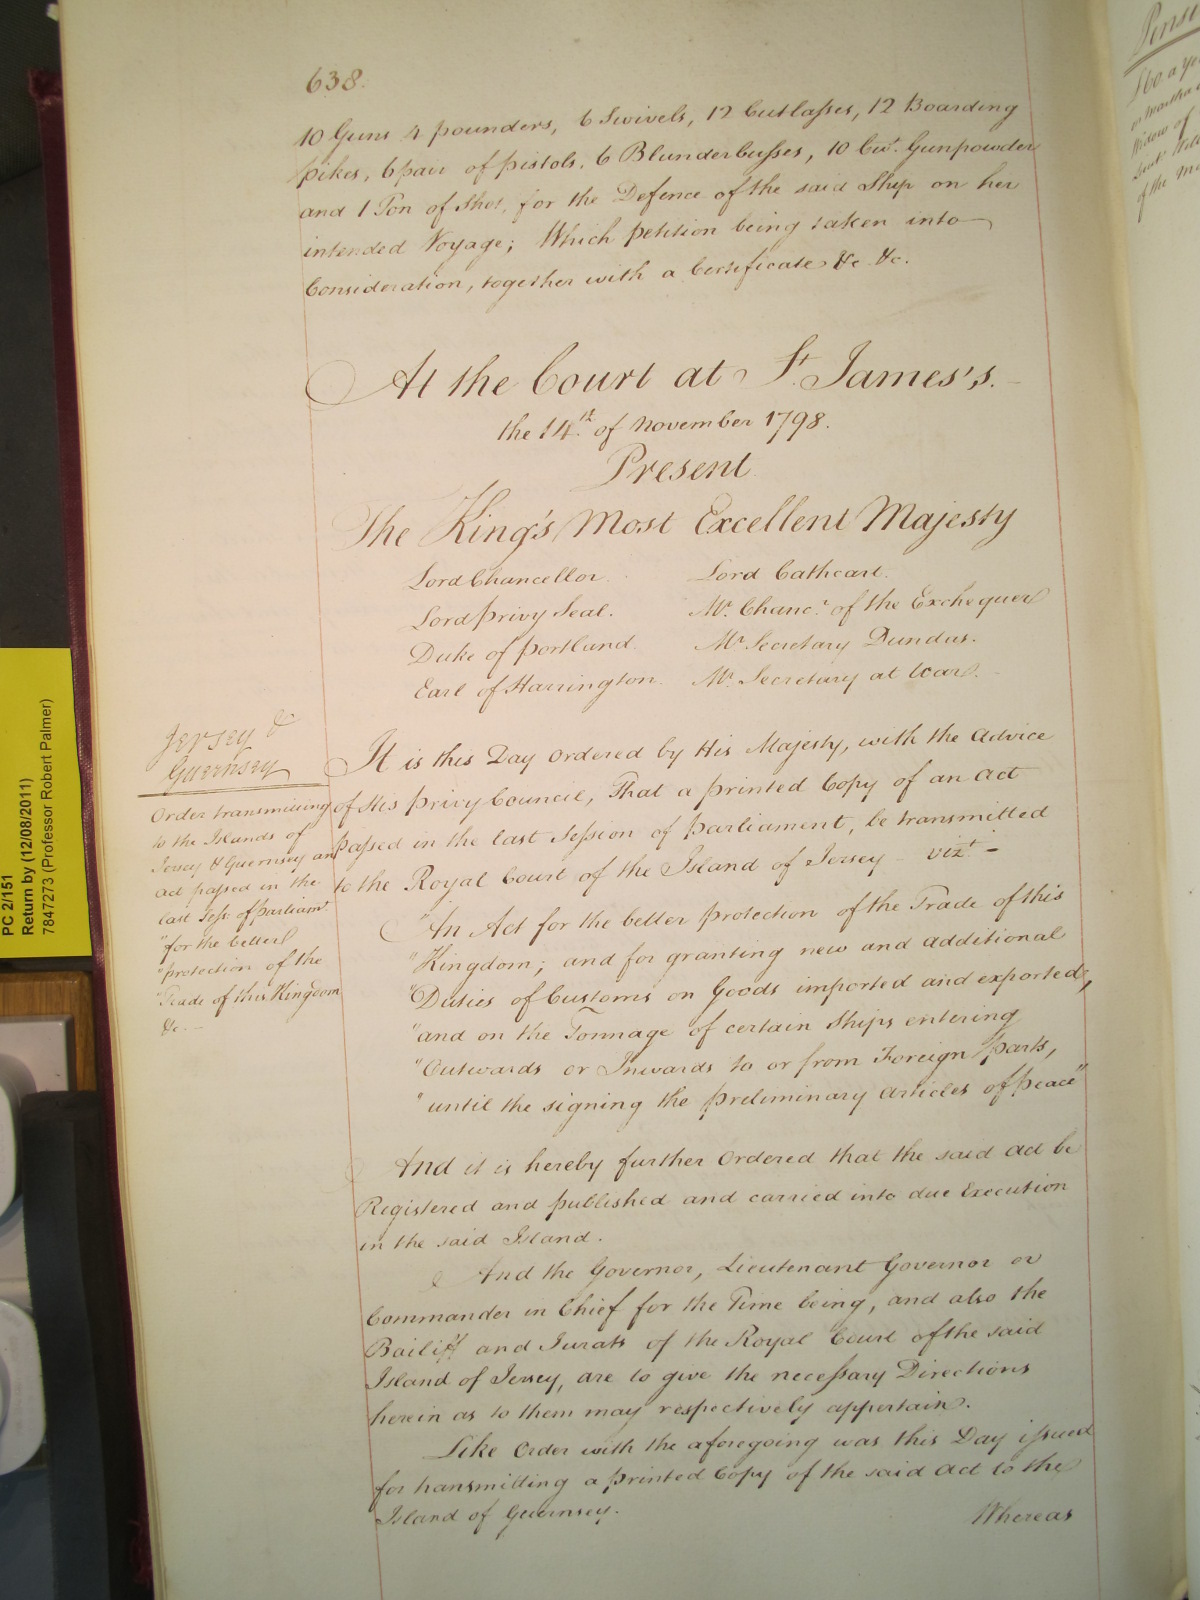 638.
10 Guns 4 pounders, 6 Swivels, 12 Cutlasses, 12 Boarding
pikes, 6 pair of pistols, 6 Blunderbusses, 10 Cwt. Gunpowder
and 1 Ton of Shot, for the Defence of the said Ship on her
intended Voyage; Which petition being taken into
Consideration, together with a Certificate &c &c.
At the Court at St. James's.
the 14th of November 1798.
Present
The King's Most Excellent Majesty
Lord Chancellor Lord Cathcart.
Lord privy Seal. Mr. Chancr. of the Exchequer
Duke of portland. Mr Secretary Dundas.
Earl of Harrington. Mr. Secretary at War.
Jersey &
Guernsey
Order transmitting
to the Islands of
Jersey & Guernsey an
act passed in the
last Sess: of parliamt
"for the better
"protection of the
"Trade of this Kingdom
&c.
It is this Day Ordered by His Majesty, with the Advice
of His privy Council, That a printed Copy of an Act
passed in the last Session of parliament, be transmitted
to the Royal Court of the Island of Jersey – vizt –
"An Act for the better protection of the Trade of this
"Kingdom; and for granting new and additional
"Duties of Customs on Goods imported and exported,
"and on the Tonnage of certain Ships entering
"Outwards or Inwards to or from Foreign parts,
"until the signing the preliminary Articles of peace"
And it is hereby further Ordered that the said Act be
Registered and published and carried into due Execution
in the said Island.
And the Governor, Lieutenant Governor or
Commander in Chief for the Time being, and also the
Bailiff and Jurats of the Royal Court of the said
Island of Jersey, are to give the necessary Directions
herein as to them may respectively appertain.
Like Order with the aforegoing was this Day issued
for transmitting a printed Copy of the said Act to the
Island of Guernsey.
Whereas
PC 2/151
Return by (12/08/2011)
7847273 (Professor Robert Palmer)
£60 a
Widow of
of the